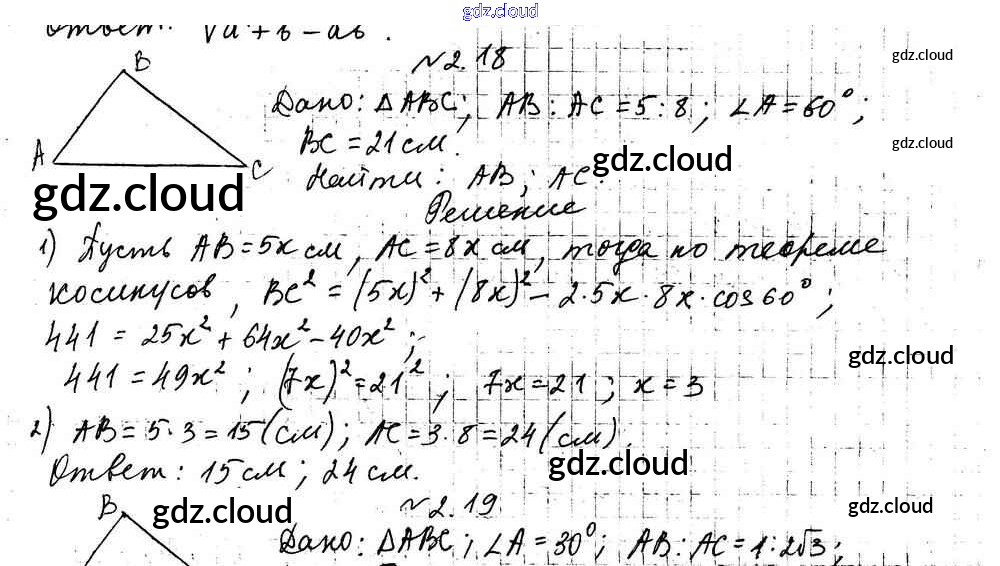 gdz.cloud
Ответ: √a+b-ab.
№2.18
gdz.cloud
B
Дано: ΔABC; AB:AC=5:8; ∠A=60°;
BC=21см.
gdz.cloud
gdz.cloud
A
C
Найти: AB; AC.
gdz.cloud
Решение
1) Пусть AB=5x см, AC=8x см, тогда по теореме
косинусов, BC²=(5x)²+(8x)²-2·5x·8x·cos60°;
441=25x²+64x²-40x²;
gdz.cloud
441=49x²; (7x)²=21²; 7x=21; x=3
2) AB=5·3=15(см); AC=3·8=24(см).
gdz.cloud
Ответ: 15см; 24см.
B
gdz.cloud
№2.19
gdz.cloud
Дано: ΔABC; ∠A=30°; AB:AC=1:2√3;